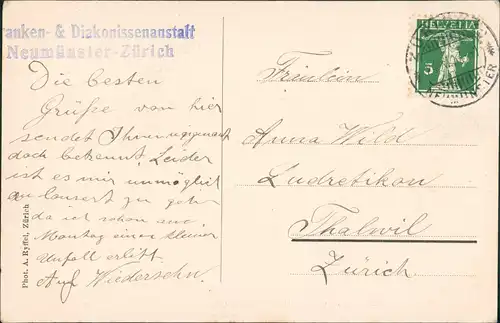 ranken- & Diakonissenanstalt
Neumünster-Zürich
Die besten
Grüße von hier
sendet Ihnen ungenannt
doch bekannt. Leider
ist es mir unmöglich
zu gehen
da ich schon am
Montag einen kleinen
Unfall erlitt
Auf Wiedersehn.
Phot. A. Ryffel, Zürich
HELVETIA
5
NEUMÜNSTER
Fräulein
Anna Wild
Ludretikon
Thalwil
Zürich